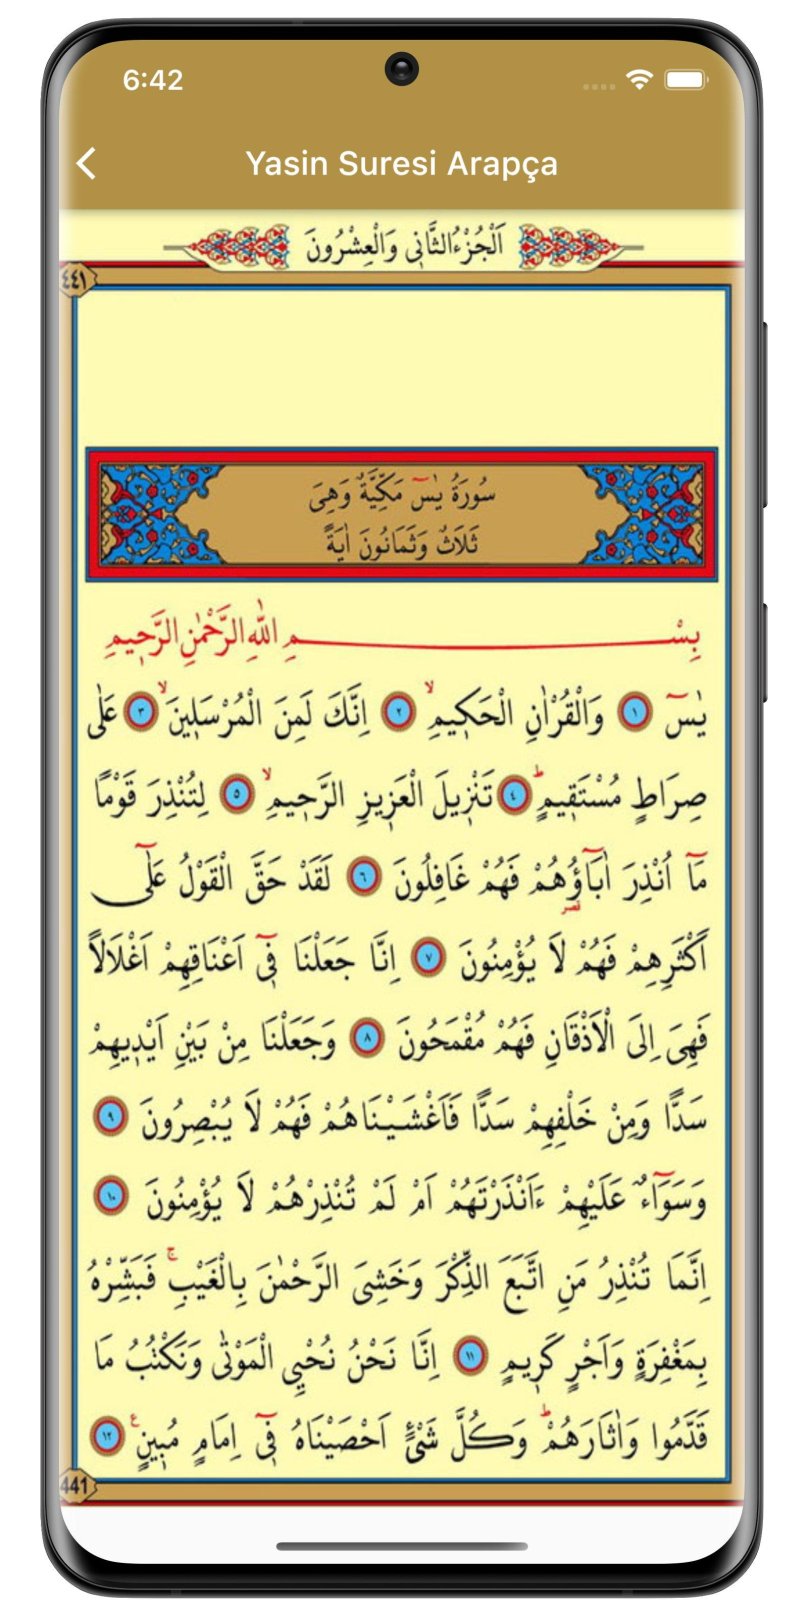 6:42
Yasin Suresi Arapça
اَلْجُزْءُ الثَّانِى وَالْعِشْرُونَ
٤٤١
سُورَةُ يٰسٓ مَكِّيَّةٌ وَهِىَ
ثَلَاثٌ وَثَمَانُونَ اٰيَةً
بِسْمِ اللّٰهِ الرَّحْمٰنِ الرَّحٖيمِ
يٰسٓ ١ وَالْقُرْاٰنِ الْحَكٖيمِۙ ٢ اِنَّكَ لَمِنَ الْمُرْسَلٖينَۙ ٣ عَلٰى
صِرَاطٍ مُسْتَقٖيمٍؕ ٤ تَنْزٖيلَ الْعَزٖيزِ الرَّحٖيمِۙ ٥ لِتُنْذِرَ قَوْمًا
مَٓا اُنْذِرَ اٰبَٓاؤُ۬هُمْ فَهُمْ غَافِلُونَ ٦ لَقَدْ حَقَّ الْقَوْلُ عَلٰٓى
اَكْثَرِهِمْ فَهُمْ لَا يُؤْمِنُونَ ٧ اِنَّا جَعَلْنَا فٖٓى اَعْنَاقِهِمْ اَغْلَالًا
فَهِىَ اِلَى الْاَذْقَانِ فَهُمْ مُقْمَحُونَ ٨ وَجَعَلْنَا مِنْ بَيْنِ اَيْدٖيهِمْ
سَدًّا وَمِنْ خَلْفِهِمْ سَدًّا فَاَغْشَيْنَاهُمْ فَهُمْ لَا يُبْصِرُونَ ٩
وَسَوَٓاءٌ عَلَيْهِمْ ءَاَنْذَرْتَهُمْ اَمْ لَمْ تُنْذِرْهُمْ لَا يُؤْمِنُونَ ١٠
اِنَّمَا تُنْذِرُ مَنِ اتَّبَعَ الذِّكْرَ وَخَشِىَ الرَّحْمٰنَ بِالْغَيْبِۚ فَبَشِّرْهُ
بِمَغْفِرَةٍ وَاَجْرٍ كَرٖيمٍ ١١ اِنَّا نَحْنُ نُحْيِى الْمَوْتٰى وَنَكْتُبُ مَا
قَدَّمُوا وَاٰثَارَهُمْؕ وَكُلَّ شَیْءٍ اَحْصَيْنَاهُ فٖٓى اِمَامٍ مُبٖينٍ ١٢
441